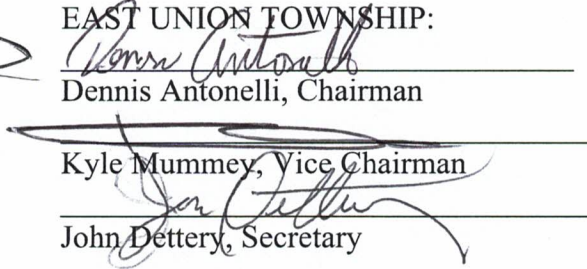 EAST UNION TOWNSHIP:
Dennis Antonelli
Dennis Antonelli, Chairman
Kyle Mummey, Vice Chairman
John Dettery, Secretary